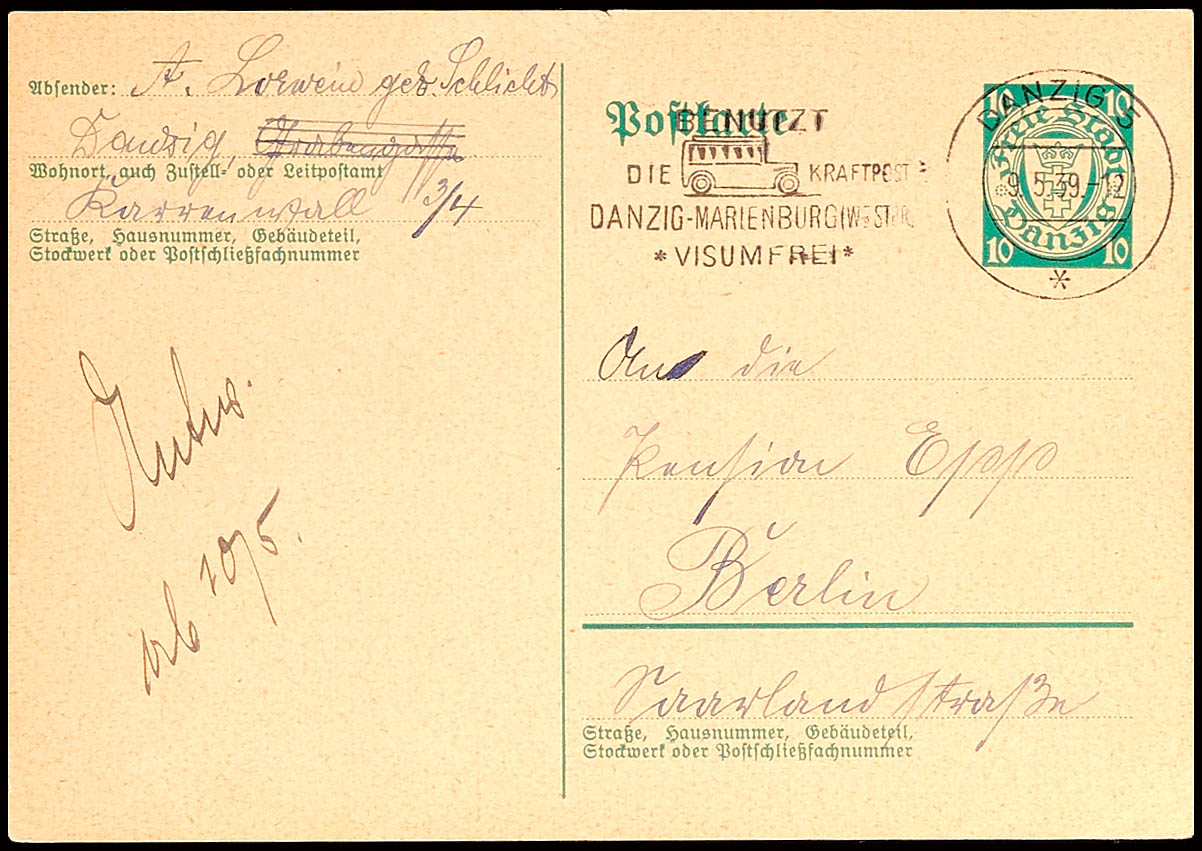 Absender: A. Loewein geb. Schlicht
Danzig,
Wohnort, auch Zustell- oder Leitpostamt
Karrenwall 3/4
Straße, Hausnummer, Gebäudeteil,
Stockwerk oder Postschließfachnummer
Postkarte
BENUTZT
DIE KRAFTPOST
DANZIG-MARIENBURG(WESTPR.
*VISUMFREI*
DANZIG 5
9.5.39.-12
*
10 10
Freie Stadt
Danzig
10 10
An die
Pension Epp
Berlin
Saarlandstraße
Straße, Hausnummer, Gebäudeteil,
Stockwerk oder Postschließfachnummer
10/5.